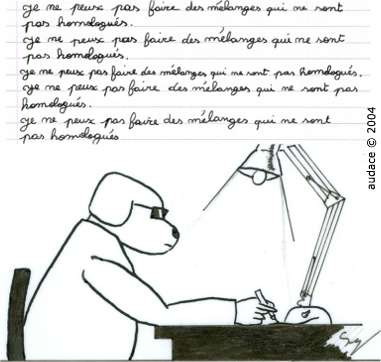 Je ne peux pas faire des mélanges qui ne sont
pas homologués.
Je ne peux pas faire des mélanges qui ne sont
pas homologués.
Je ne peux pas faire des mélanges qui ne sont pas homologués.
Je ne peux pas faire des mélanges qui ne sont pas
homologués.
Je ne peux pas faire des mélanges qui ne sont
pas homologués
audace © 2004